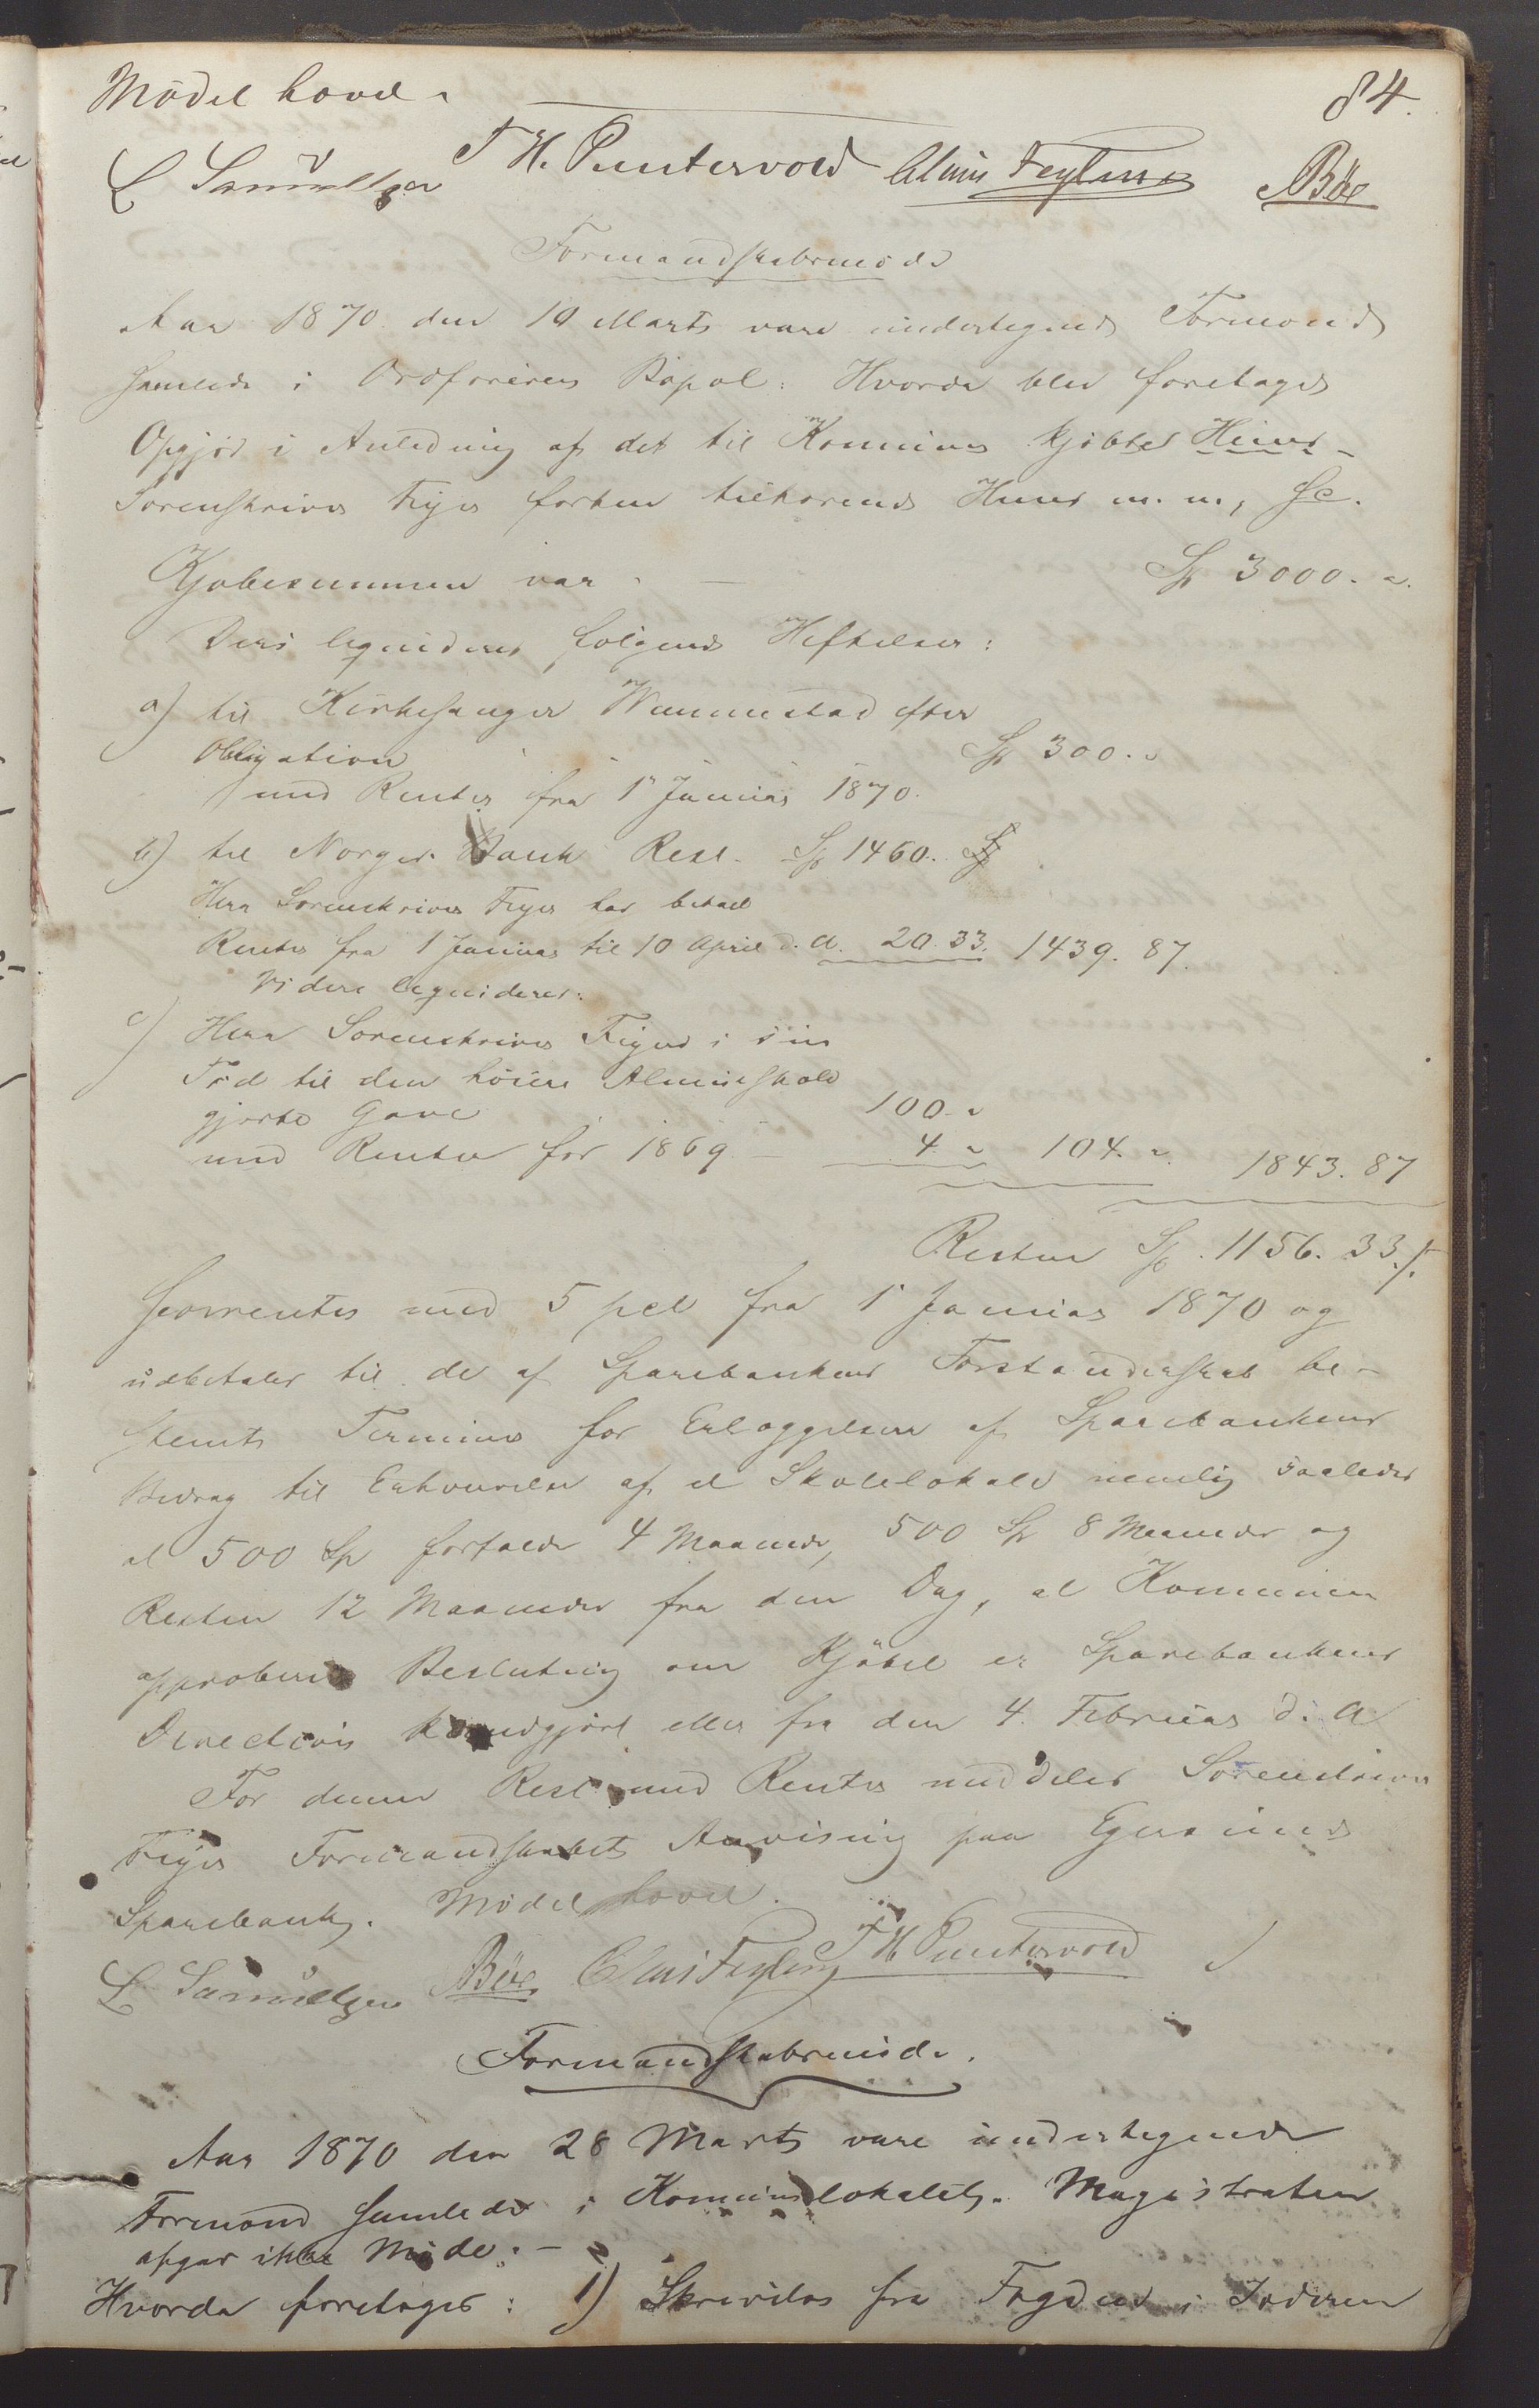 Mødet hævet
84.
L Samuelsen T H. Puntervold Claus Feyling Bøe
Formandskabsmøde
Aar 1870 den 19 Marts vare undertegnede Formænd
samlede i Ordførerens Bopæl. Hvorda blev foretaget
Opgjør i Anledning af det til Kommunen kjøbte Huus
Sorenskriver Feyer forhen tilhørende Huus m. m., 
Kjøbesummen var - Sp 3000. "
Deri liquideres følgende Heftelser:
a) til Kirkesanger Wummestad efter
Obligation Sp 300. "
med Renter fra 1 Januar 1870.
b) til Norges Bank Rest. Sp 1460.
Herr Sorenskriver Feyer har betalt
Renter fra 1 Januar til 10 April d. A. 20. 33. 1439. 87.
Videre liquideres:
c) Herr Sorenskriver Feyers i sin
Tid til den høiere Almueskole
gjorte Gave 100. "
med Renter for 1869 - 4 " 104. " 1843. 87
Resten Sp. 1156. 33 /.
forrentes med 5 pct fra 1 Januar 1870 og
udbetales til de af Sparebankens Forstanderskab be-
stemte Terminer for Erlæggelsen af Sparebankens
Bidrag til Erhvervelse af et Skolelokale nemlig saaledes
at 500 Sp forfalder 4 Maaneder, 500 Sp 8 Maaneder og
Resten 12 Maaneder fra den Dag, at Kommunens
approberede Beslutning om Kjøbet er Sparebankens
Direction kundgjort eller fra den 4. Februar d. A
For denne Rest med Renter meddeles Sorenskriver
Feyer Formandskabets Anvisning paa Egersunds
Sparebank. Mødet hævet.
L Samuelsen Bøe Claus Feyling T H Puntervold
Formandskabsmøde.
Aar 1870 den 28 Marts vare undertegnede
Formænd samlede i Kommunelokalet. Magistraten
afgav ikke Møde. -
Hvorda foretages: 1) Skrivelse fra Fogden i Jæderen